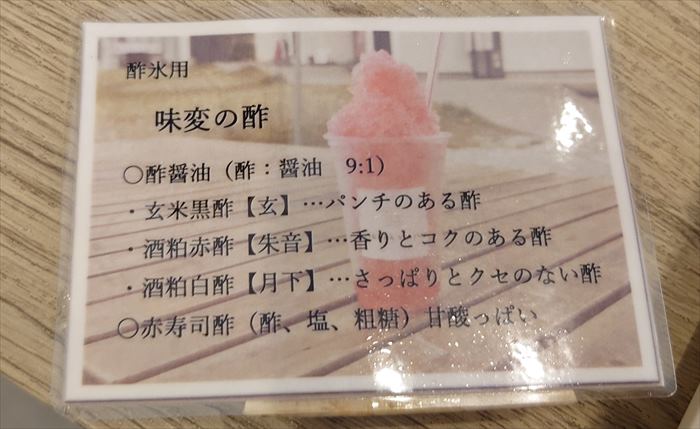 酢氷用
味変の酢
〇酢醤油（酢：醤油　9:1）
・玄米黒酢【玄】…パンチのある酢
・酒粕赤酢【朱音】…香りとコクのある酢
・酒粕白酢【月下】…さっぱりとクセのない酢
〇赤寿司酢（酢、塩、粗糖）甘酸っぱい